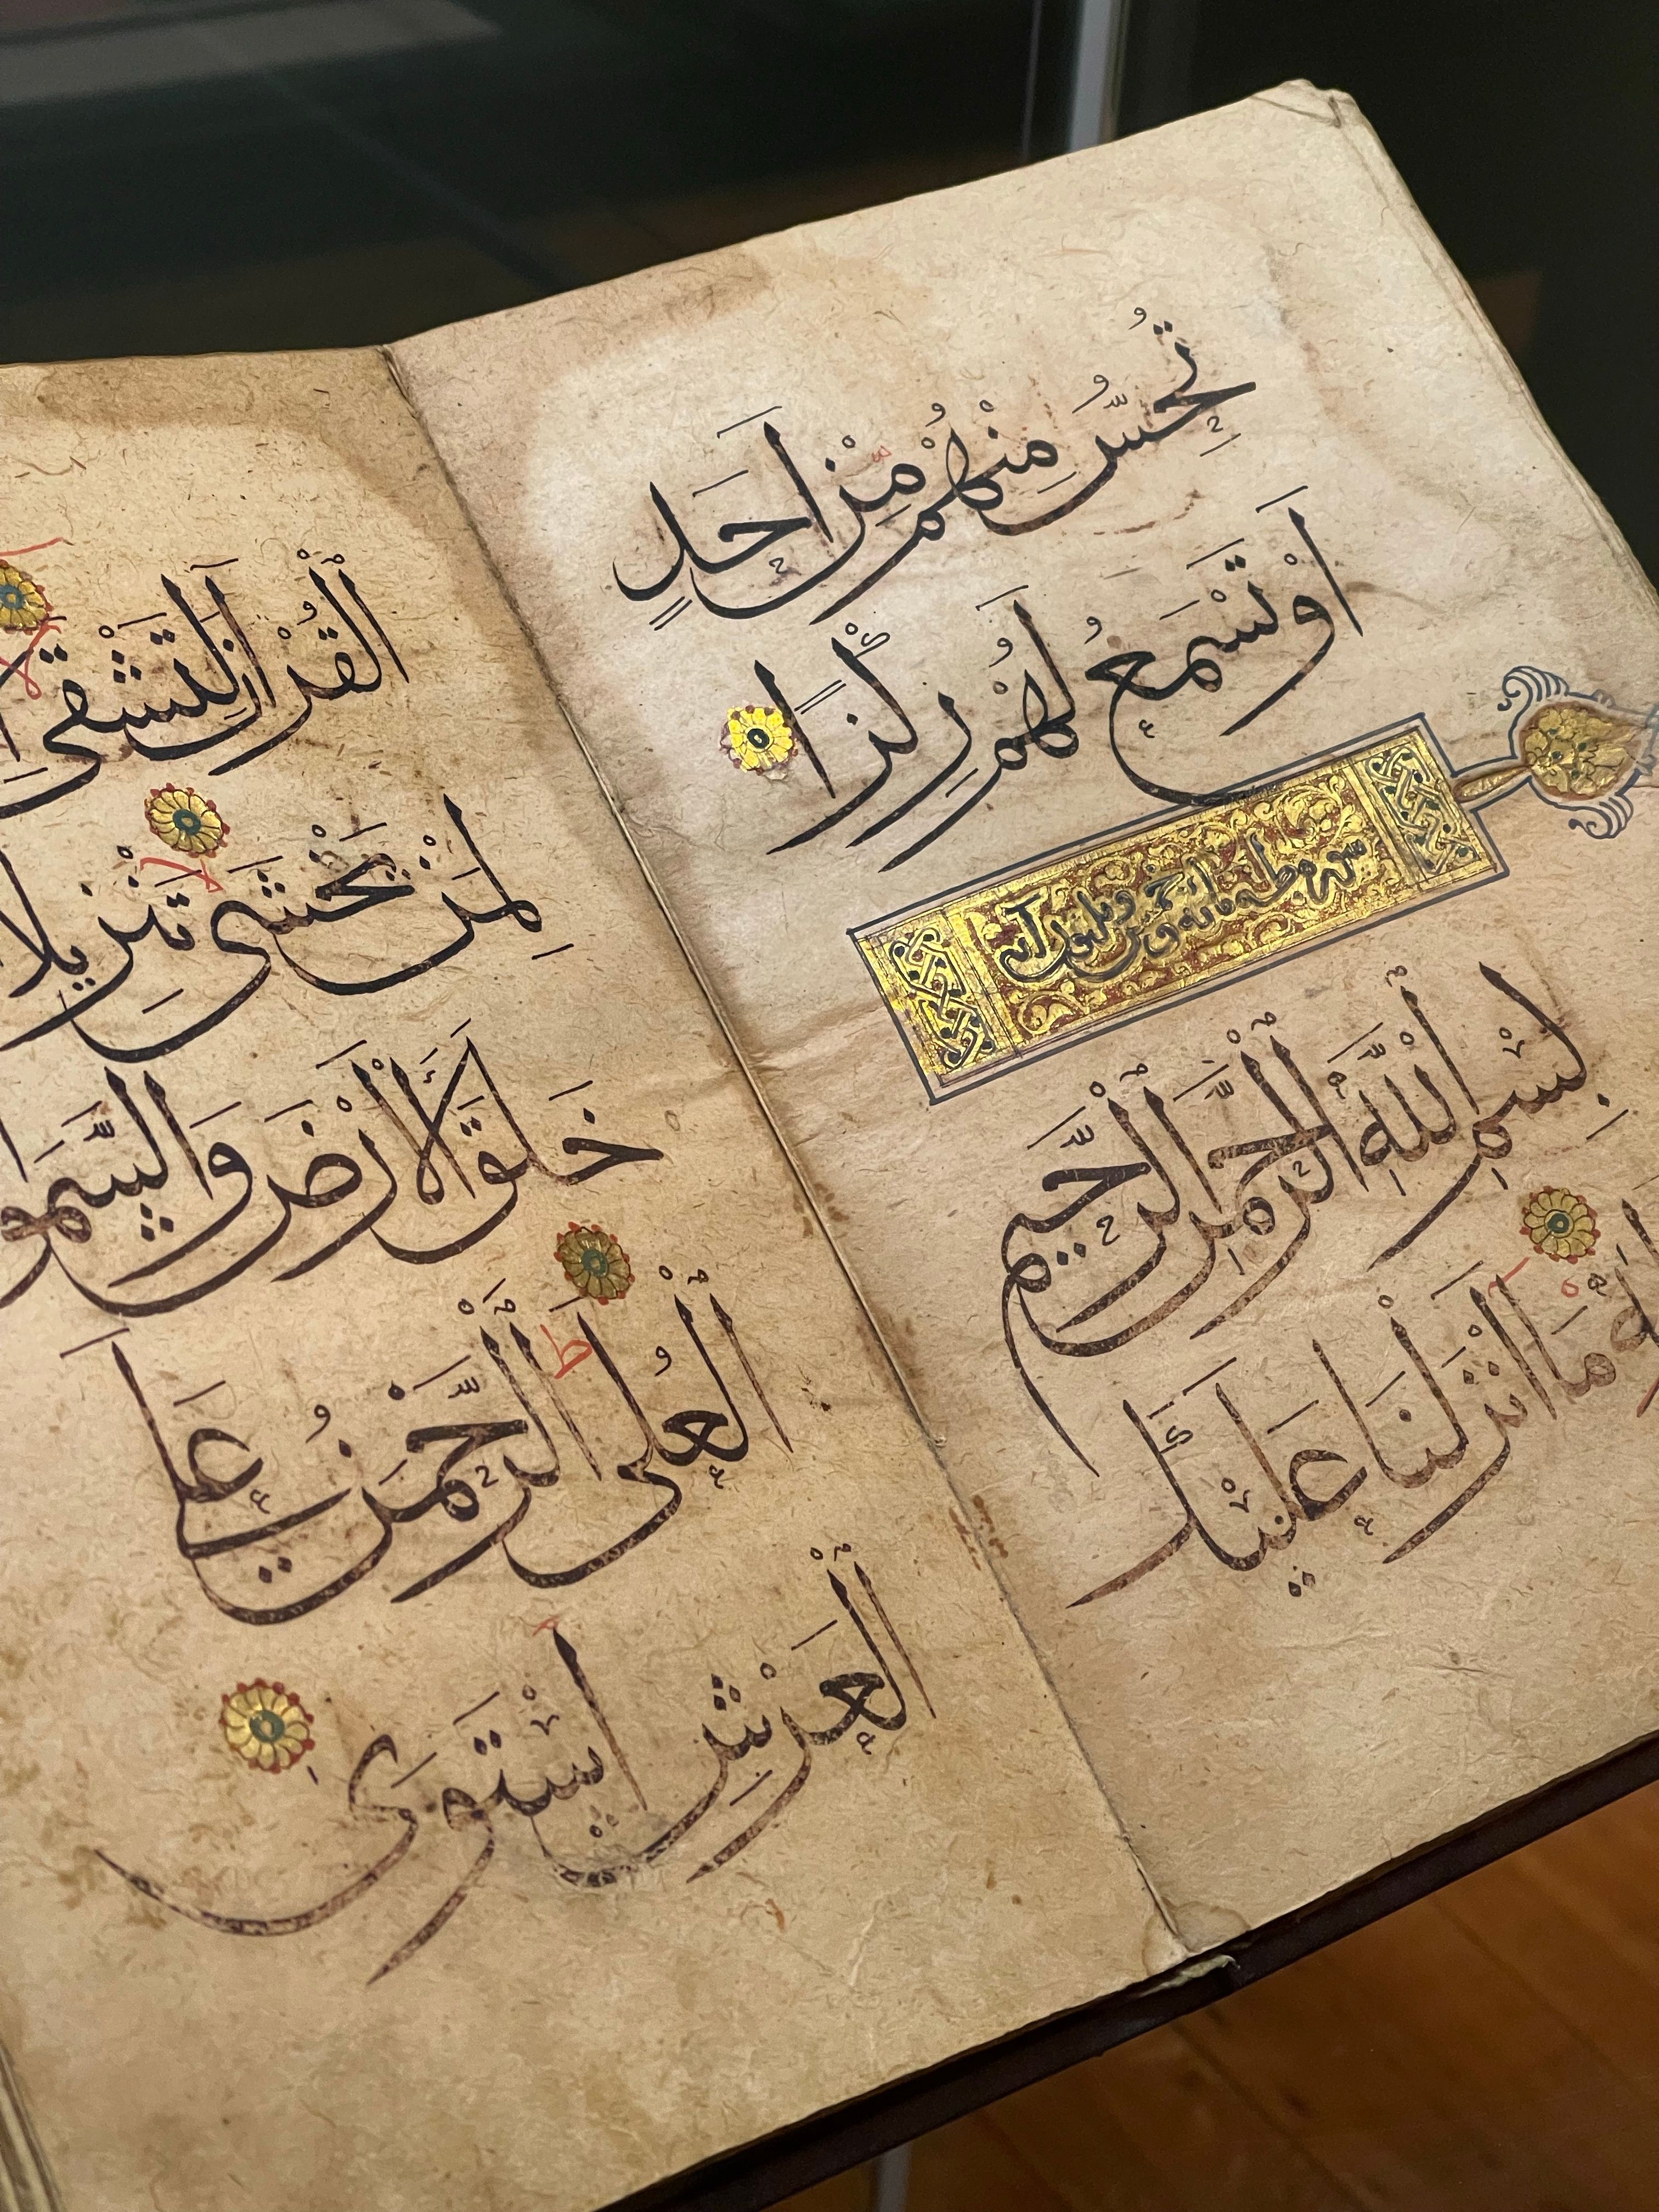 تُحِسُّ مِنْهُمْ مِنْ اَحَدٍ
اَوْ تَسْمَعُ لَهُمْ رِكْزًا
سورة طه مايه وخمس وثلثون آية
بِسْمِ اللَّهِ الرَّحْمَنِ الرَّحِيمِ
طه مَا اَنْزَلْنَا عَلَيْكَ
الْقُرْانَ لِتَشْقَى اِلا
لِمَنْ يَخْشَى تَنْزِيلا
خَلَقَ الأَرْضَ وَالسَّمَو
الْعُلَى الرَّحْمَنُ عَلَى
الْعَرْشِ اسْتَوَى